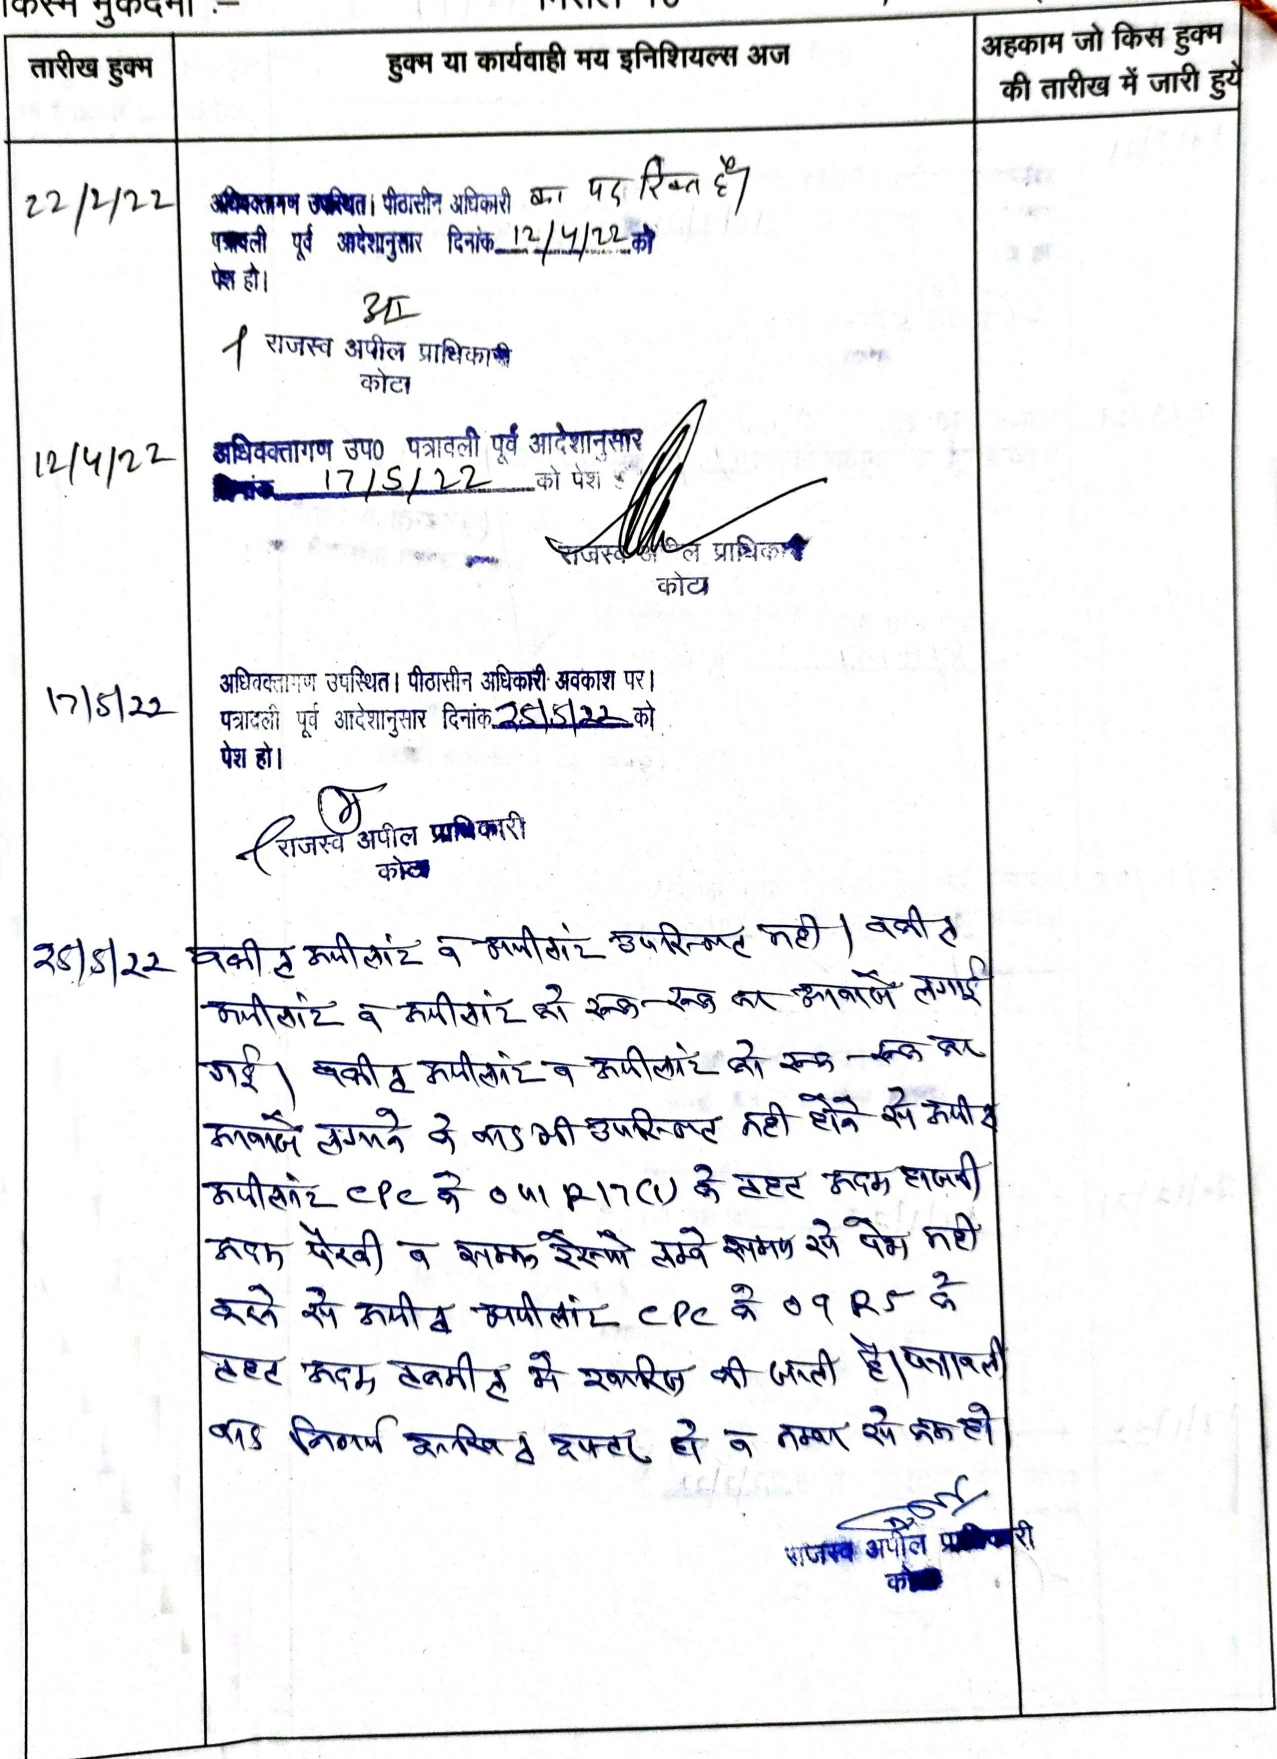 किस्म मुकदमा :-
तारीख हुक्म
हुक्म या कार्यवाही मय इनिशियल्स अज
अहकाम जो किस हुक्म
की तारीख में जारी हुये
22/2/22
अधिवक्तागण उपस्थित। पीठासीन अधिकारी का पद रिक्त है।
पत्रावली पूर्व आदेशानुसार दिनांक 12/4/22 को
पेश हो।
राजस्व अपील प्राधिकारी
कोटा
12/4/22
अधिवक्तागण उप0 पत्रावली पूर्व आदेशानुसार
दिनांक 17/5/22 को पेश
राजस्व अपील प्राधिकारी
कोटा
17/5/22
अधिवक्तागण उपस्थित। पीठासीन अधिकारी अवकाश पर।
पत्रावली पूर्व आदेशानुसार दिनांक 25/5/22 को
पेश हो।
राजस्व अपील प्राधिकारी
कोटा
25/5/22
वकील अपीलांट व अपीलांट उपस्थित नही। वकील
अपीलांट व अपीलांट को रूक-रूक कर आवाजें लगाई
गई। वकील अपीलांट व अपीलांट को रूक-रूक कर
आवाजें लगाने के बाद भी उपस्थित नही होने से अपील
अपीलांट CPC के O41 R17(1) के तहत अदम हाजरी
अदम पैरवी व लम्बे समय से पेश नही
करने से अपील अपीलांट CPC के O9 R5 के
तहत अदम तकमील में खारिज की जाती है। पत्रावली
बाद निर्णय दाखिल दफ्तर हो व नम्बर से कम हो
राजस्व अपील प्राधिकारी
कोटा